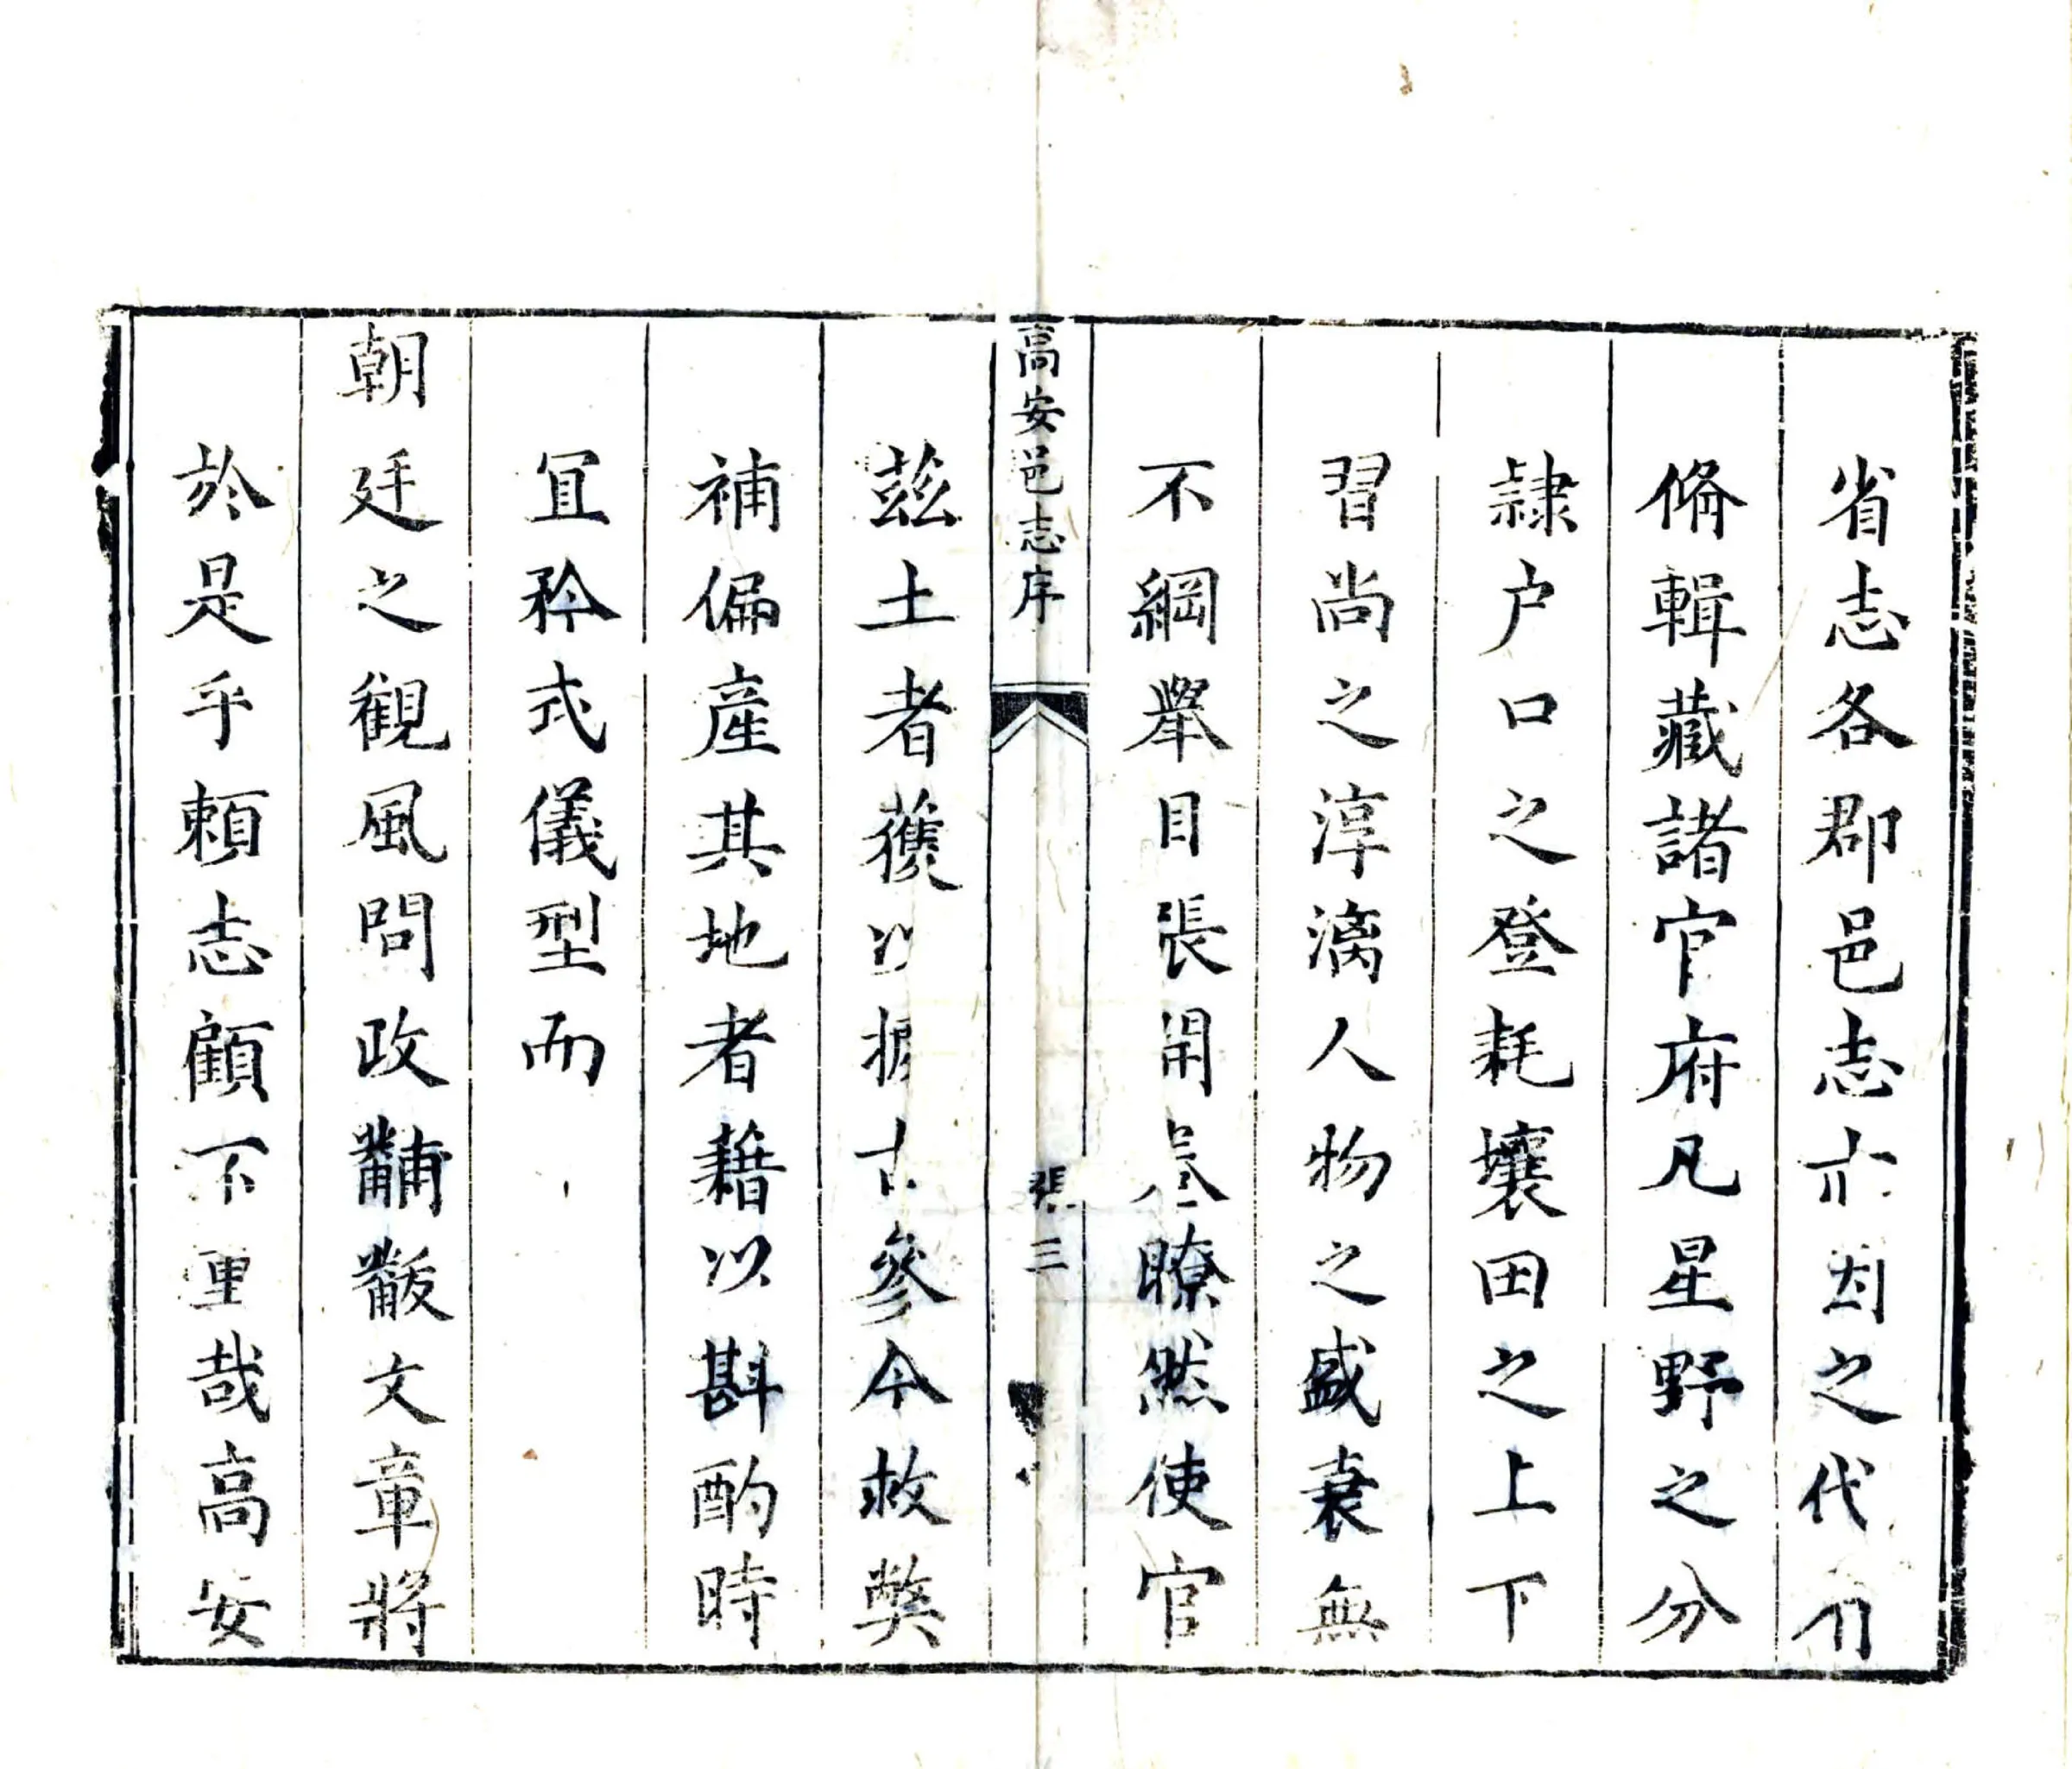 省志各郡邑志亦因之代有
脩輯藏諸官府凡星野之分
隷户口之登耗壤田之上下
習尚之淳漓人物之盛衰無
不綱舉目張開卷瞭然使官
高安邑志序
張三
兹土者獲以據古參今救獘
補偏產其地者藉以斟酌時
冝矜式儀型而
朝廷之觀風問政黼黻文章將
於是乎頼志顧不重哉高安